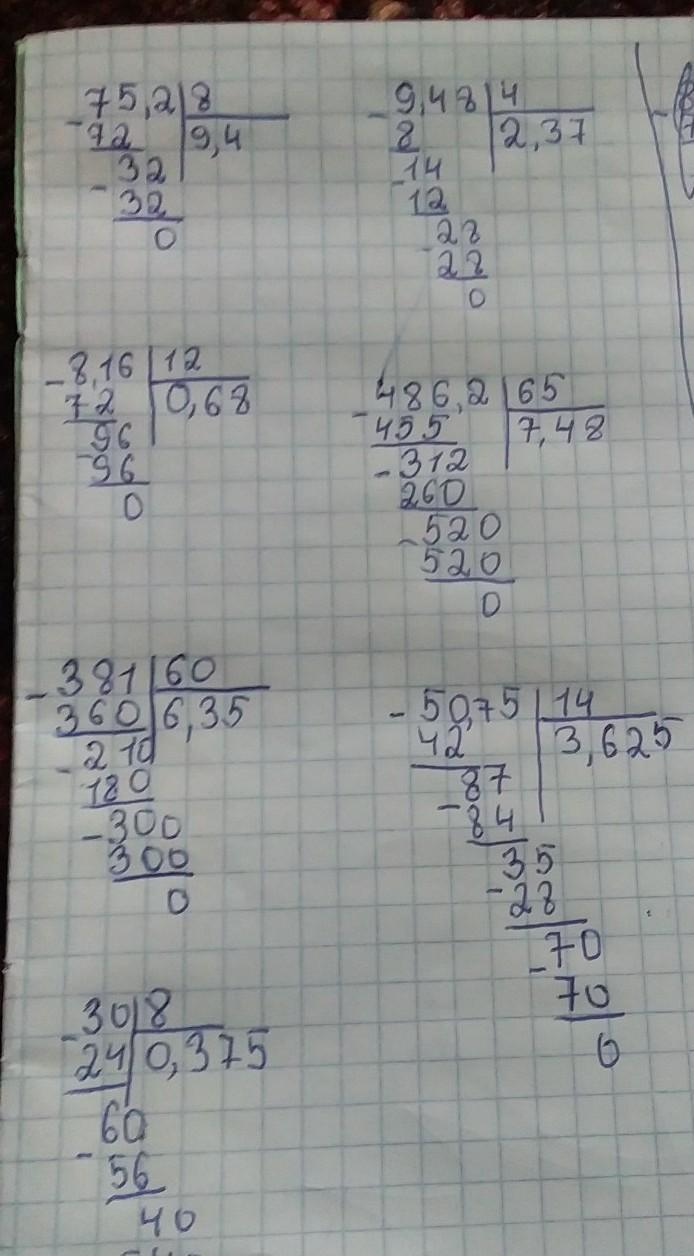 75,2 8
72 9,4
- 32
32
0
- 9,48 4
8 2,37
- 14
12
- 28
28
0
- 8,16 12
72 0,68
- 96
96
0
- 486,2 65
455 7,48
- 312
260
- 520
520
0
- 381 60
360 6,35
- 210
180
- 300
300
0
- 50,75 14
42 3,625
- 87
84
- 35
28
- 70
70
0
- 30 8
24 0,375
- 60
56
40